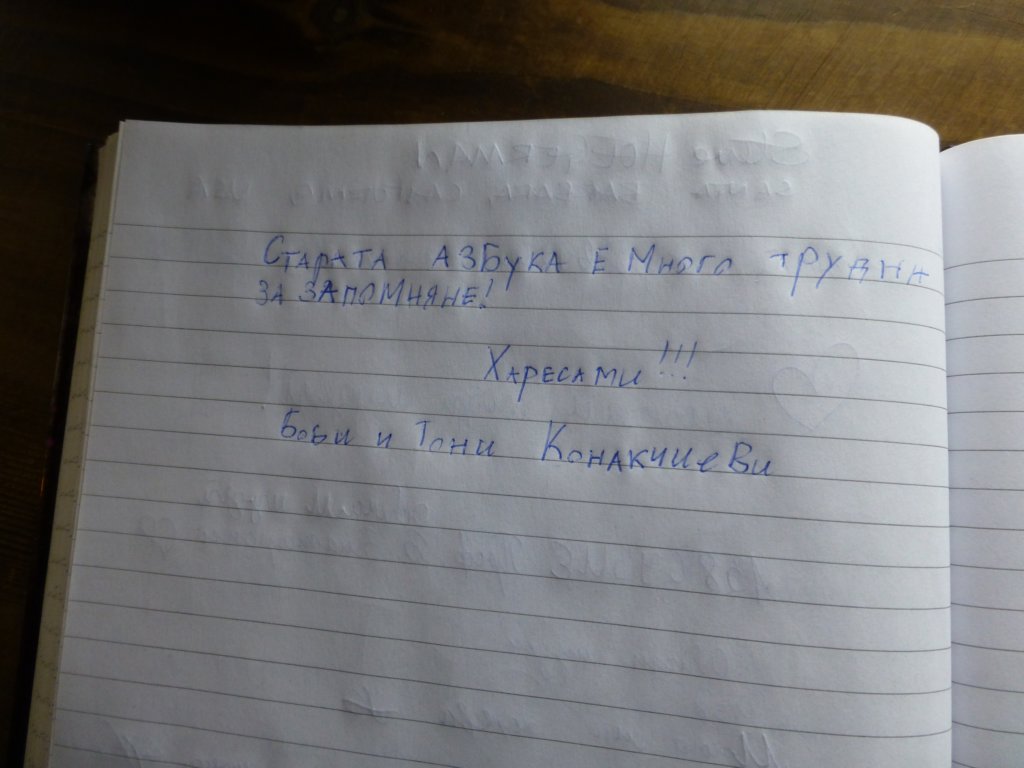 Старата азбука е много трудна
за запомняне!
Харесами!!!
Боби и Тони Конакчиеви